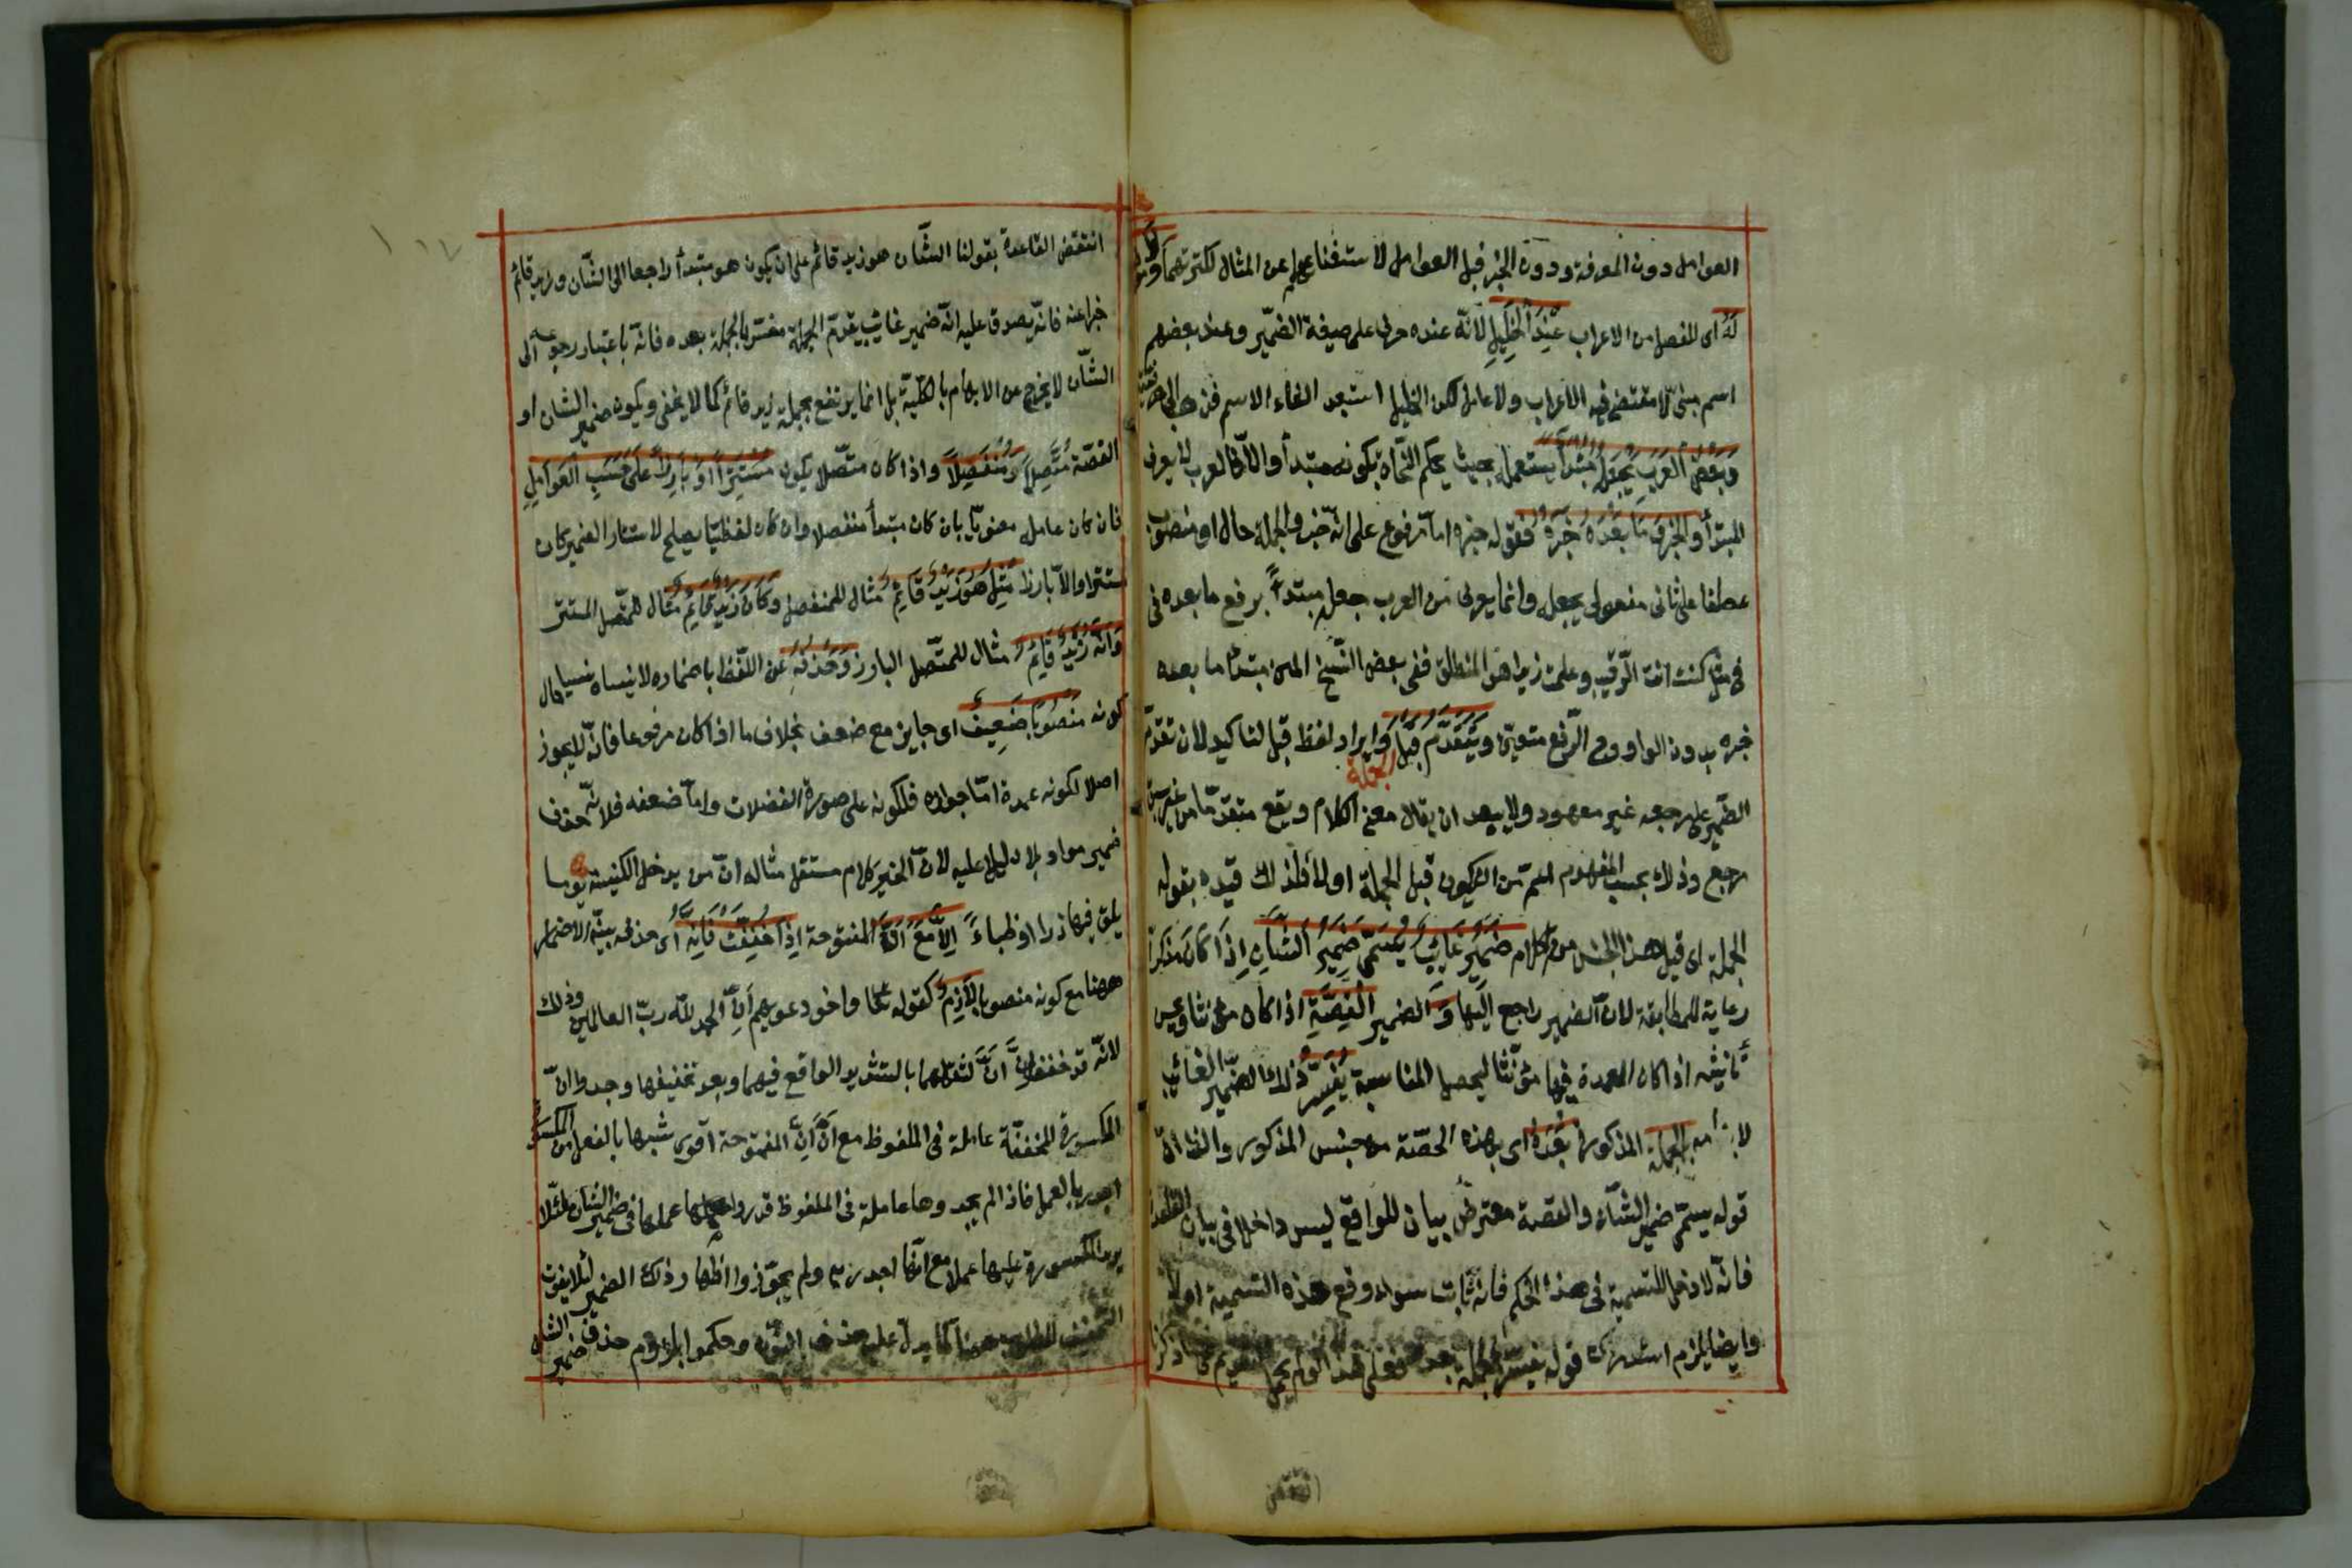 العوامل دون المعرفة ودون الخبر قبل العوامل لاستغنائهما عن المثال لكثرتهما ولا موضع
له اى للفصل من الاعراب عند الخليل لانه عنده حرف على صيغة الضمير وعند بعضهم
اسم مبنى لا مقتضى فيه الاعراب ولا عامل لكن الخليل استبعد الغاء الاسم فذهب الى حرفيته
وبعض العرب يجعله مبتدأ يستعمله بحيث يحكم النحاة بكونه مبتدأ والا فالعرب لا يعرف
المبتدأ والخبر وما بعده خبره فقوله خبره اما مرفوع على انه خبر والجملة حال او منصوب
عطفا على ثانى مفعولى يجعله وانما يعرف من العرب جعله مبتدأ برفع ما بعده فى
فى مثل كنت انت الرقيب وعلمت زيدا هو المنطلق ففى بعض النسخ المتن مبتدأ ما بعده
خبره بدون الواو وح الرفع متعين ويتقدم قبل الجملة وايراد لفظ قبل لتاكيد لان تقدم
الضمير على مرجعه غير معهود ولا يبعد ان يقال معنى الكلام ويقع متقدما من غير سبق
مرجع وذلك بحسب المفهوم اعم من ان يكون قبل الجملة او لا فلذلك قيده بقوله
الجملة اى قبل هذا الجنس من الكلام ضمير غائب يسمى ضمير الشان اذا كان مذكرا
رعاية للمطابقة لان الضمير راجع اليها و الضمير القصة اذا كان مؤنثا ويحسن
تأنيثه اذا كان العمدة فيها مؤنثا ليحصل المناسبة يفسر ذلك الضمير الغائب
لابهامه بالجملة المذكورة بعده اى بهذه الحصة من جنس المذكور والظاهر ان
قوله يسمى ضمير الشان والقصة معترض بيان للواقع ليس داخلا فى بيان القاعدة
فانه لا دخل للتسمية فى هذا الحكم فانه ثابت سواء وقع هذه التسمية او لا
وايضا يلزم استدراك قوله يفسر بالجملة بعده فعلى هذا لو لم يحمل التقديم على ما ذكرنا
انتقض القاعدة بقولنا الشان هو زيد قائم على ان يكون هو مبتدأ راجعا الى الشان وزيد قائم
خبرا عنه فانه يصدق عليه انه ضمير غائب يتقدم الجملة مفسر بالجملة بعده فانه باعتبار رجوعه الى
الشان لا يخرج عن الابهام بالكلية بل انما يرتفع بجملة زيد قائم كما لا يخفى ويكون ضمير الشان او
القصة متصلا ومنفصلا واذا كان متصلا يكون مستترا او بارزا على حسب العوامل
فان كان عامله معنويا بان كان مبتدأ منفصلا وان كان لفظيا يصلح لاستتار الضمير كان
مستترا والا بارزا مثل هو زيد قائم مثال للمنفصل وكان زيد قائم مثال للمتصل المستتر
وانه زيد قائم مثال للمتصل البارز وحذفه عن اللفظ باضماره لا نسيا منسيا حال
كونه منصوبا ضعيف اى جايز مع ضعف بخلاف ما اذا كان مرفوعا فانه لا يجوز
اصلا لكونه عمدة اما جوازه فلكونه على صورة الفضلات واما ضعفه فلانه حذف
ضمير مراد بلا دليل عليه لان الخبر كلام مستقل مثاله ان من يدخل الكنيسة يوما
يلق فيها جاذرا وظباء الا مع ان المفتوحة اذا خففت فانه اى حذفه بنية الاضمار
ههنا مع كونه منصوبا لازم كقوله تعالى واخر دعويهم ان الحمد لله رب العالمين وذلك
لانه قد خففوا ان ان لثقلهما بالتشديد الواقع فيهما وبعد تخفيفها وجدوا ان
المكسورة المخففة عاملة فى الملفوظ مع ان ان المفتوحة اقوى شبها بالفعل من المكسورة
اجدر بالعمل فاذا لم يجدوها عاملة فى الملفوظ قدروا عملها فى ضمير الشان لئلا
يزيد المكسورة عليها عملا مع انها اجدر به ولم يجوزوا اظهار ذلك الضمير لئلا يفوت
التخفيف المطلوب ههنا كما يدل عليه حذف النون وحكموا بلزوم حذف ضمير الشان